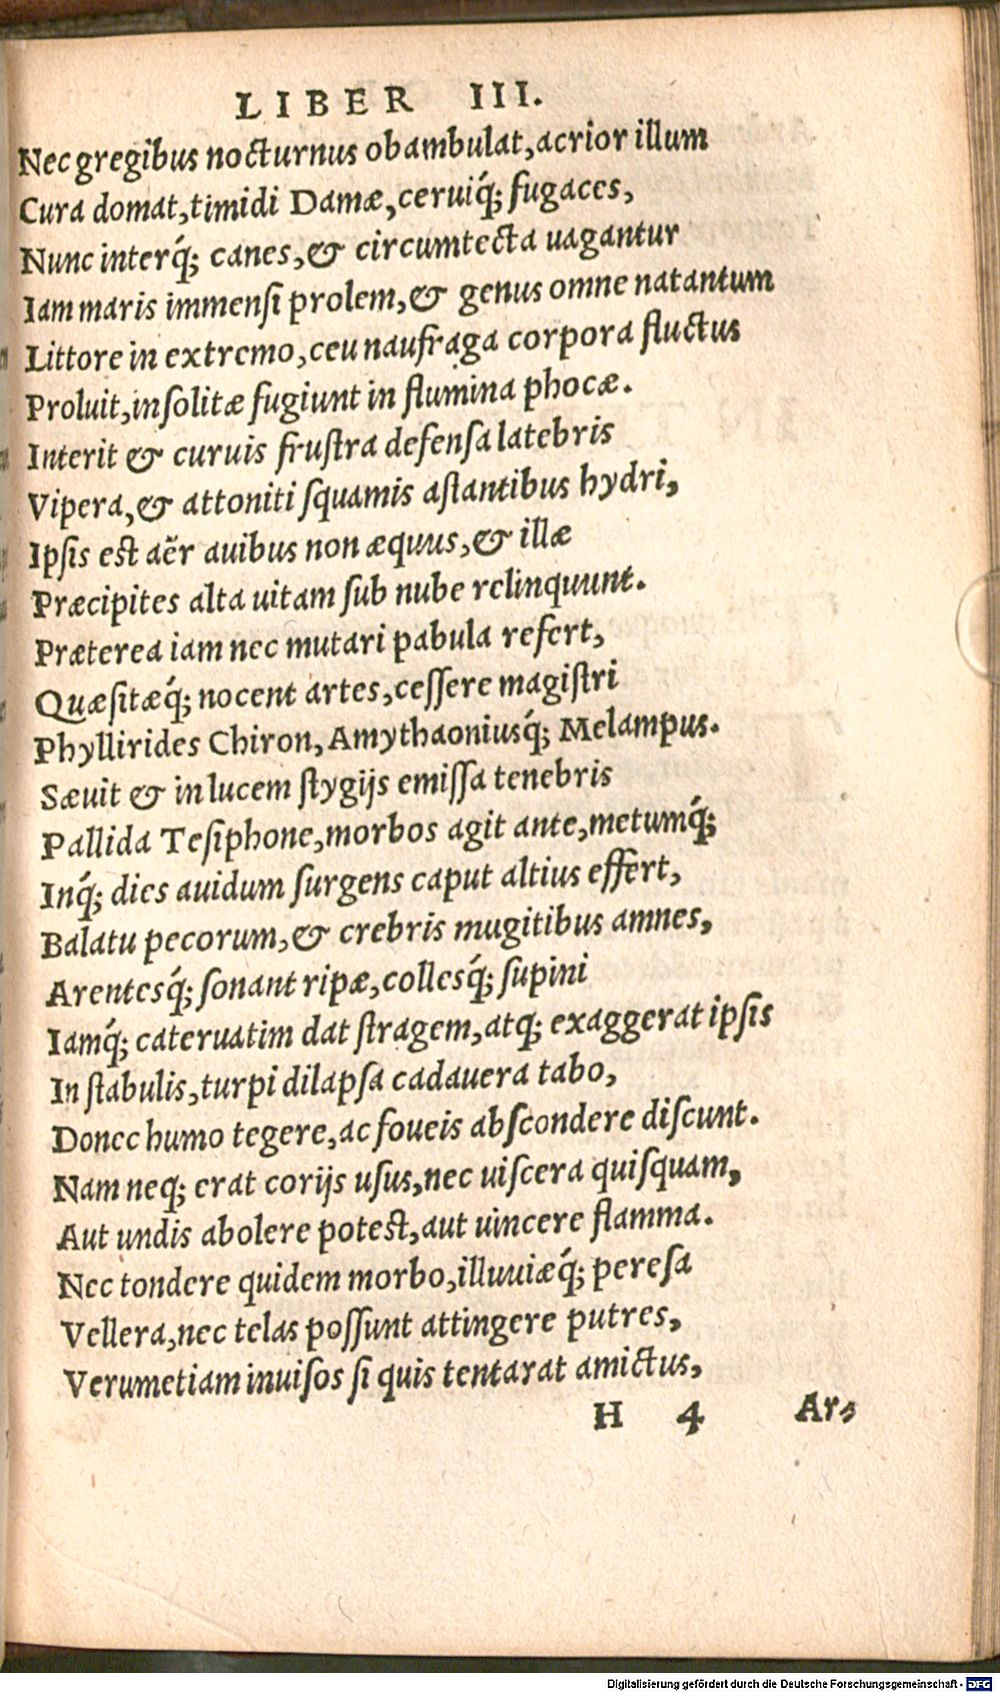 LIBER III.
Nec gregibus nocturnus obambulat, acrior illum
Cura domat, timidi Damæ, ceruiq́; fugaces,
Nunc interq́; canes, & circumtecta uagantur
Iam maris immensi prolem, & genus omne natantum
Littore in extremo, ceu naufraga corpora fluctus
Proluit, insolitæ fugiunt in flumina phocæ.
Interit & curuis frustra defensa latebris
Vipera, & attoniti squamis astantibus hydri,
Ipsis est aër auibus non æquus, & illæ
Præcipites alta uitam sub nube relinquunt.
Præterea iam nec mutari pabula refert,
Quæsitæq́; nocent artes, cessere magistri
Phyllirides Chiron, Amythaoniusq́; Melampus.
Sæuit & in lucem stygijs emissa tenebris
Pallida Tesiphone, morbos agit ante, metumq́;
Inq́; dies auidum surgens caput altius effert,
Balatu pecorum, & crebris mugitibus amnes,
Arentesq́; sonant ripæ, collesq́; supini
Iamq́; cateruatim dat stragem, atq; exaggerat ipsis
In stabulis, turpi dilapsa cadauera tabo,
Donec humo tegere, ac foueis abscondere discunt.
Nam neq; erat corijs usus, nec uiscera quisquam,
Aut undis abolere potest, aut uincere flamma.
Nec tondere quidem morbo, illuuiæq́; peresa
Vellera, nec telas possunt attingere putres,
Verumetiam inuisos si quis tentarat amictus,
H 4 Ar-
Digitalisierung gefördert durch die Deutsche Forschungsgemeinschaft - DFG